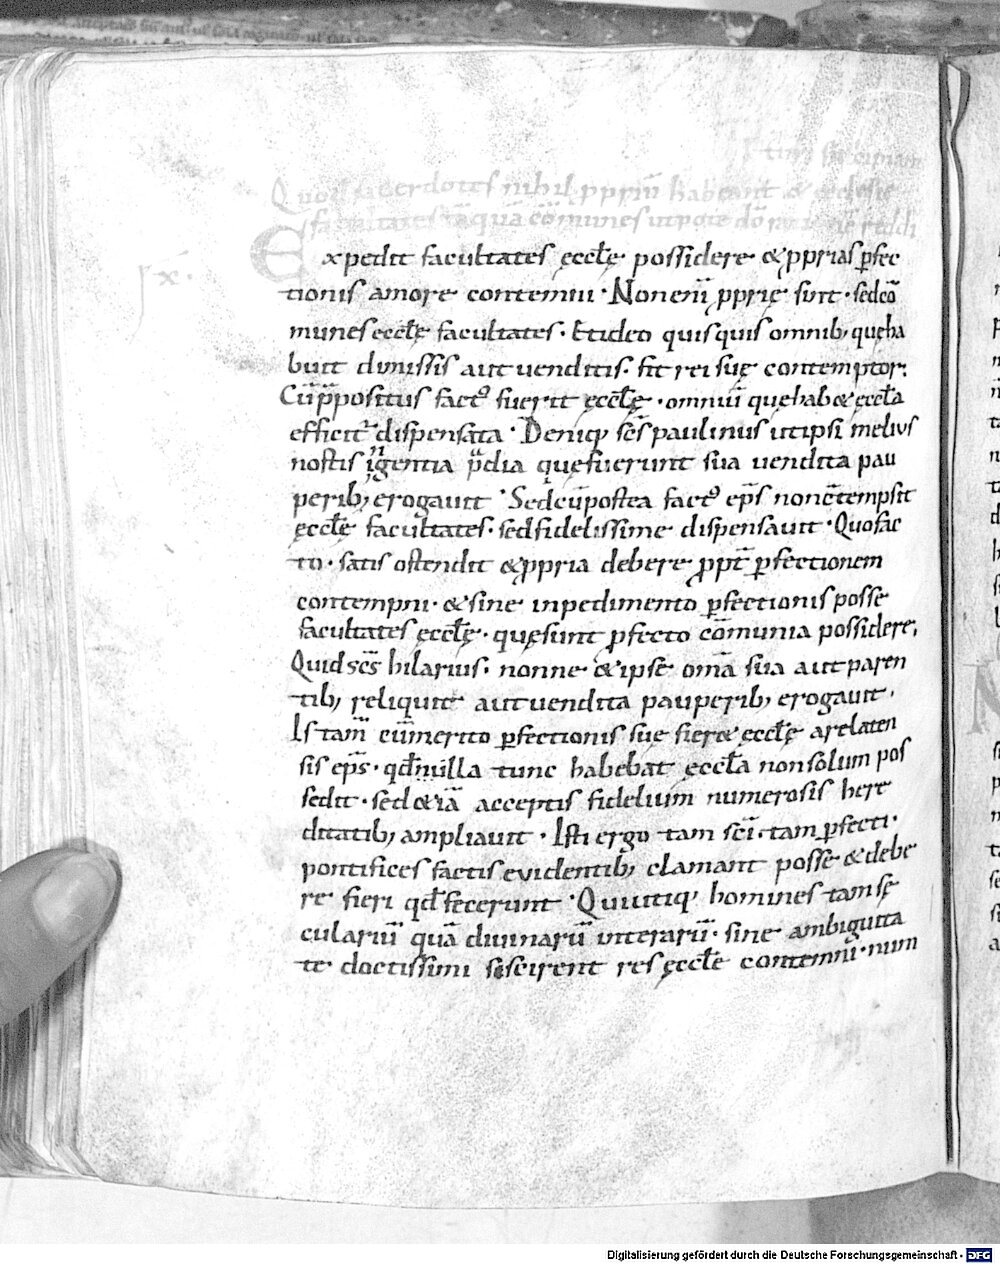 Quod sacerdotes nihil ꝓpriũ habeant & ecclesie
facultates tãquã cõmunes utpote dõ
ıx.
Expedit facultates ęccl̃ę possidere & ꝓprias ꝑfec
tionis amore contemni · Non enĩ ꝓprię sunt · sed cõ
munes eccl̃ę facultates · Et ideo quisquis omnib; quę ha
buit dimissis aut uenditis · fit rei suę contemptor;
Cũ p̃positus fact᾽ fuerit ęccl̃ę · omniũ que hab& ęccl̃a
efficit᾽ dispensata · Deniq; sc̃s paulinus ut ipsi melius
nostis ingentia p̃dia quę fuerunt sua uendita pau
perib; erogauit · Sed cũ postea fact᾽ ep̃s non cõtempsit
ęccl̃ę facultates · sed fidelissime dispensauit · Quo fac
to · satis ostendit & ꝓpria debere ꝓpt̃ ꝑfectionem
contempni · & sine inpedimento ꝑfectionis posse
facultates ęccl̃ę · quę sunt ꝓfecto cõmunia possidere;
Quid sc̃s hilarius · nonne & ipse om̃a sua aut paren
tib; reliquit aut uendita pauperib; erogauit ·
Is tam̃ cũ merito ꝑfectionis suę fier& ęccl̃ę arelaten
sis ep̃s · qd̃ illa tunc habebat ęccl̃a non solum pos
sedit · sed & iã acceptis fidelium numerosis here
ditatib; ampliauit · Isti ergo tam sc̃i · tam ꝑfecti ·
pontifices factis euidentib; clamant posse & debe
re fieri qd̃ fecerunt · Qui utiq; homines tam sę
culariũ quã diuinarũ litterarũ · sine ambiguita
te doctissimi si scirent res ęccl̃ę contemni · num
Digitalisierung gefördert durch die Deutsche Forschungsgemeinschaft · DFG